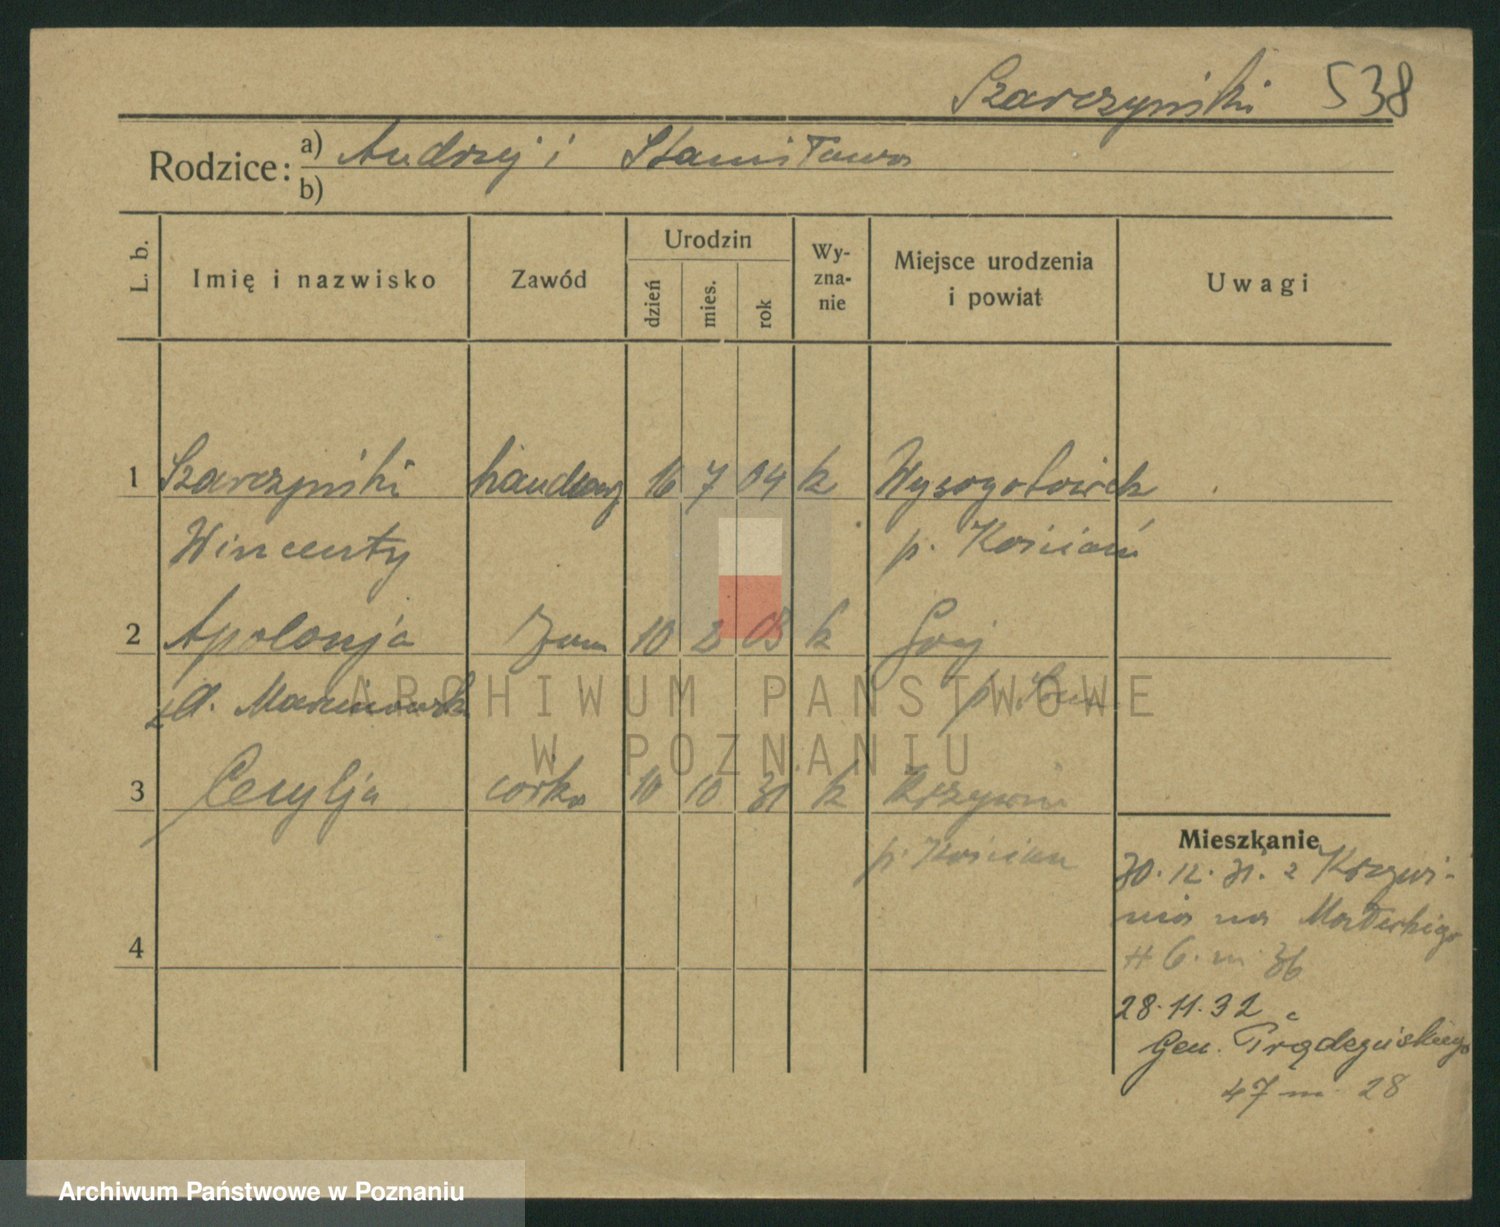 Szarczyński 538
Rodzice: a) Andrzej i Stanisława
b)
L. b.
Imię i nazwisko
Zawód
Urodzin
dzień
mies.
rok
Wy-
zna-
nie
Miejsce urodzenia
i powiat
Uwagi
1 Szarczyński handlowy 16 7 04 k Wysogotówek
Wincenty p. Kościań
2 Apolonja żona 10 2 03 k Gaj
zd. Marcinowska p.
3 Cecylja córka 10 10 31 k Krzywin
p. Kościan
4
Mieszkanie
30.12.31. z Krzywi-
nia na Małeckiego
# 6. m 36
28.11.32
Gen. Prądzyńskiego
47 m 28
ARCHIWUM PAŃSTWOWE
W POZNANIU
Archiwum Państwowe w Poznaniu